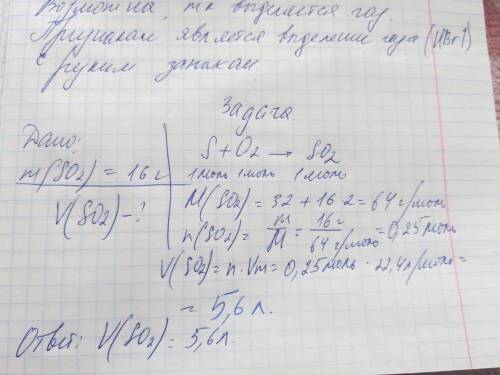 Возможна, т.к выделяется газ.
Признаком является выделение газа (HBr↑)
с резким запахом
Задача.
Дано:
m(SO2) = 16 г
V(SO2) - ?
S + O2 → SO2
1 моль 1 моль 1 моль
M(SO2) = 32 + 16·2 = 64 г/моль
n(SO2) = m/M = 16 г/64 г/моль = 0,25 моль
V(SO2) = n · Vm = 0,25 моль · 22,4 л/моль =
= 5,6 л.
Ответ: V(SO2) = 5,6 л.